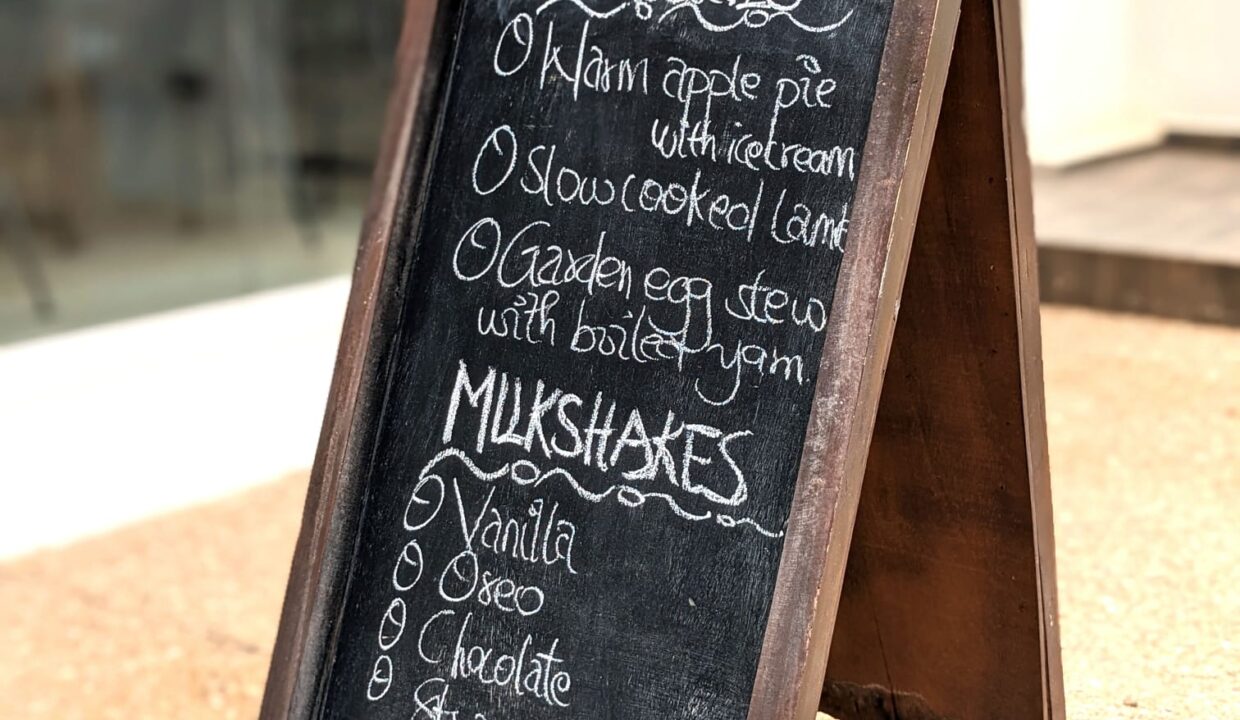 Warm apple pie
with icecream
Slow cooked Lamb
Garden egg stew
with boiled yam.
MILKSHAKES
Vanilla
Oreo
Chocolate